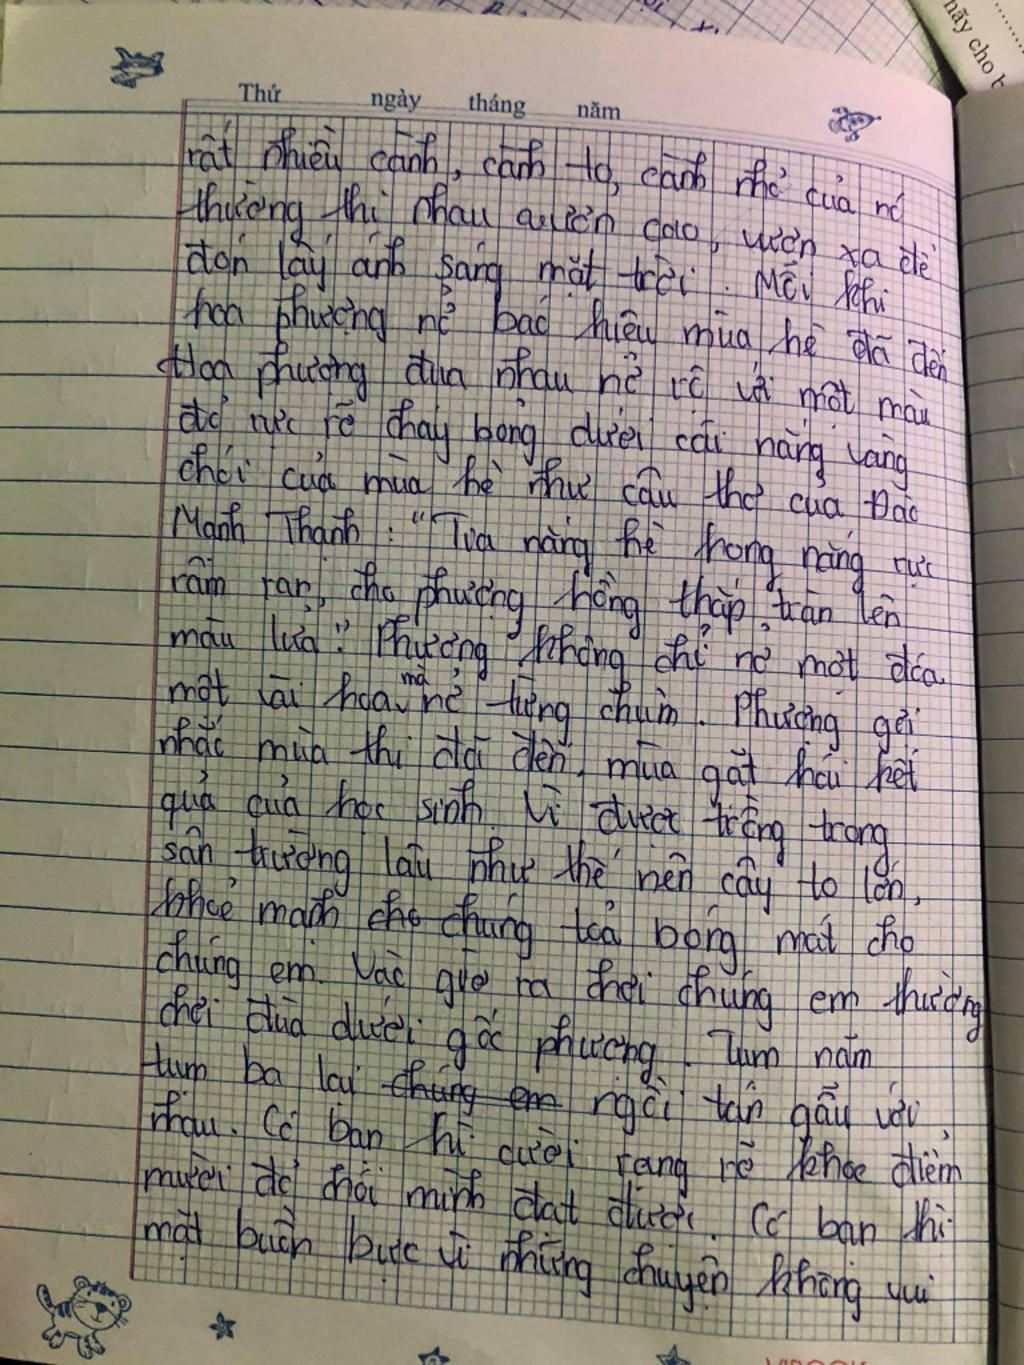 hãy cho
Thứ ngày tháng năm
rất nhiều cành, cành to, cành nhỏ của nó
thường thi nhau vươn cao, vươn xa để
đón lấy ánh sáng mặt trời. Mỗi khi
hoa phượng nở báo hiệu mùa hè đã đến
Hoa phượng đua nhau nở rộ với một màu
đỏ rực rỡ cháy bỏng dưới cái nắng vàng
chói của mùa hè như câu thơ của Đào
Mạnh Thạnh : "Tựa nàng hè trong nắng rực
râm ran, cho phượng hồng thắp tràn lên
màu lửa". Phượng không chỉ nở một đóa
một vài hoa mà nở từng chùm. Phượng gợi
nhắc mùa thi đã đến, mùa gặt hái kết
quả của học sinh. Vì được trồng trong
sân trường lâu như thế nên cây to lớn,
khỏe mạnh cho chúng tỏa bóng mát cho
chúng em. Vào giờ ra chơi chúng em thường
chơi đùa dưới gốc phượng. Tụm năm
tụm ba lại chúng em ngồi tán gẫu với
nhau. Có bạn thì cười rạng rỡ khoe điểm
mười đỏ chói mình đạt được. Có bạn thì
mặt buồn bực vì những chuyện không vui